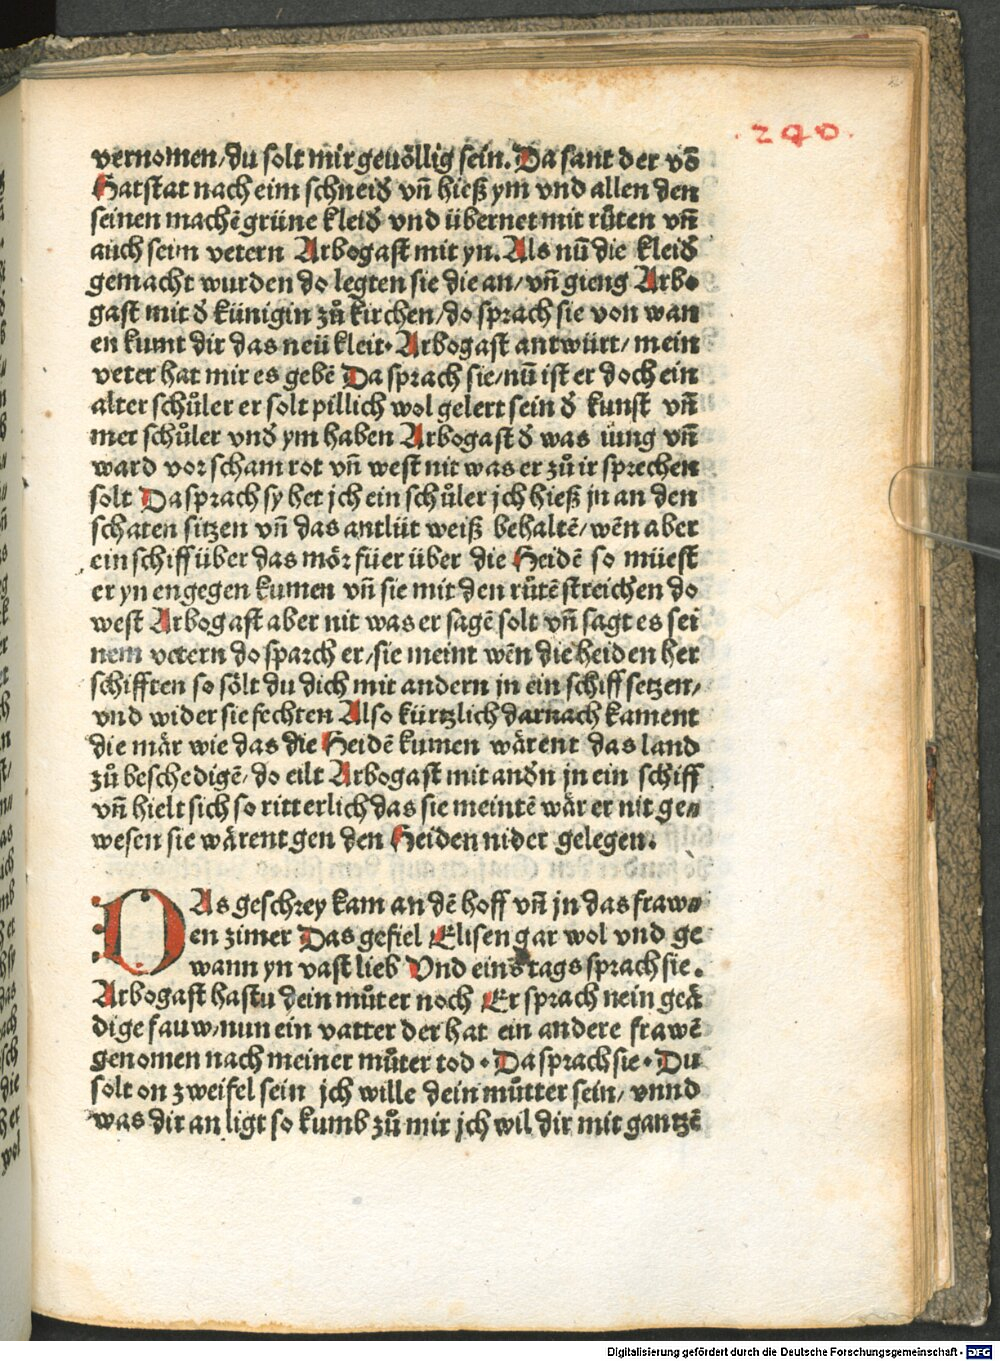 . 240 .
vernomen/du solt mir geuöllig sein. Da sant der vō
Hatstat nach eim schneiđ vn̄ hieß ym vnd allen den
seinen machē grüne kleiđ vnd übernet mit růten vn̄
auch seim vetern Arbogast mit yn. Als nū die kleiđ
gemacht wurden do legten sie die an/vn̄ gieng Arbo
gast mit đ künigin zů kirchen/do sprach sie von wan
en kumt dir das neü kleit. Arbogast antwürt/mein
veter hat mir es gebē Da sprach sie/nū ist er doch ein
alter schůler er solt pillich wol gelert sein đ kunst vn̄
mer schůler vnđ ym haben Arbogast đ was iung vn̄
ward vor scham rot vn̄ west nit was er zů ir sprechen
solt Da sprach sy het jch ein schůler jch hieß jn an den
schaten sitzen vn̄ das antlüt weiß behaltē/wēn aber
ein schiff über das mör füer über die Heidē so müest
er yn engegen kumen vn̄ sie mit den růtē streichen do
west Arbogast aber nit was er sagē solt vn̄ sagt es sei
nem vetern do sparch er/sie meint wēn die heiden her
schifften so sölt du dich mit andern jn ein schiff setzen/
vnd wider sie fechten Also kürtzlich darnach kament
die mär wie das die Heidē kumen wärent das land
zů beschedigē/do eilt Arbogast mit anđn jn ein schiff
vn̄ hielt sich so ritterlich das sie meintē wär er nit ge⸗
wesen sie wärent gen den Heiden nider gelegen.
DAs geschrey kam an dē hoff vn̄ jn das fraw⸗
en zimer Das gefiel Elisen gar wol vnd ge
wann yn vast lieb Vnd eins tags sprach sie.
Arbogast hastu dein můter noch Er sprach nein geä
dige fauw/nun ein vatter der hat ein andere frawē
genomen nach meiner můter tod. Da sprach sie. Du
solt on zweifel sein jch wille dein můtter sein/vnnd
was dir an ligt so kumb zů mir jch wil dir mit gantzē
Digitalisierung gefördert durch die Deutsche Forschungsgemeinschaft - DFG